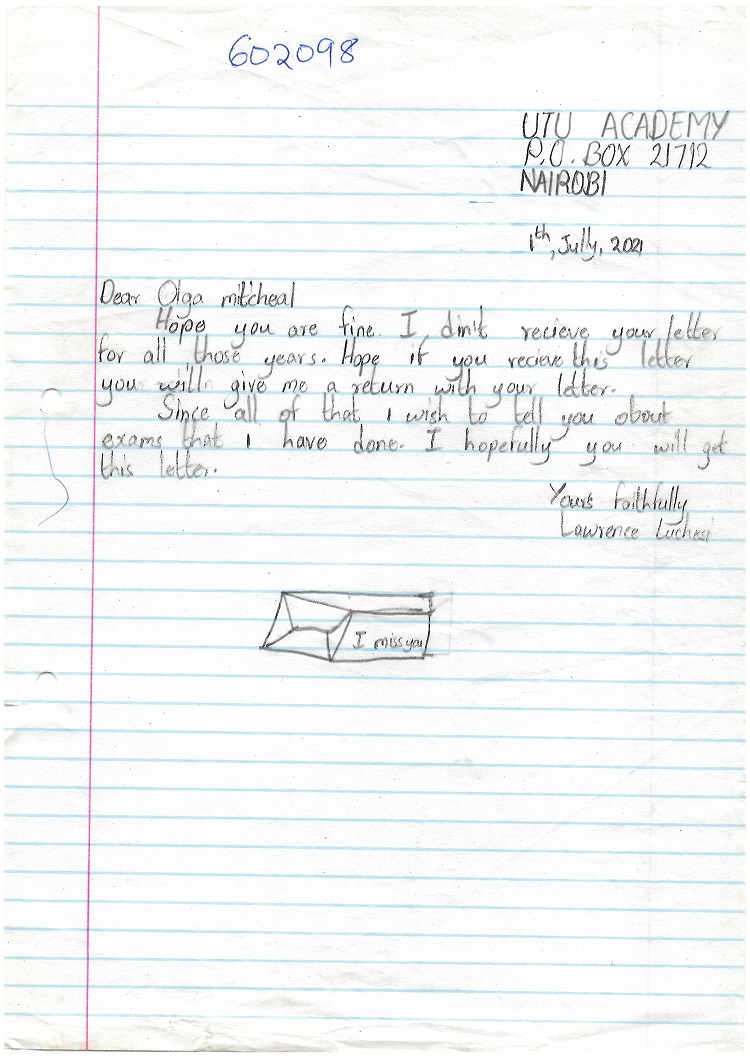 602098
UTU ACADEMY
P.O. BOX 21712
NAIROBI
1th, Jully, 2021
Dear Olga mitcheal
Hope you are fine. I din't recieve your letter
for all those years. Hope if you recieve this letter
you will give me a return with your letter.
Since all of that I wish to tell you about
exams that I have done. I hopefully you will get
this letter.
Yours faithfully
Lawrence Luchesi
I miss you